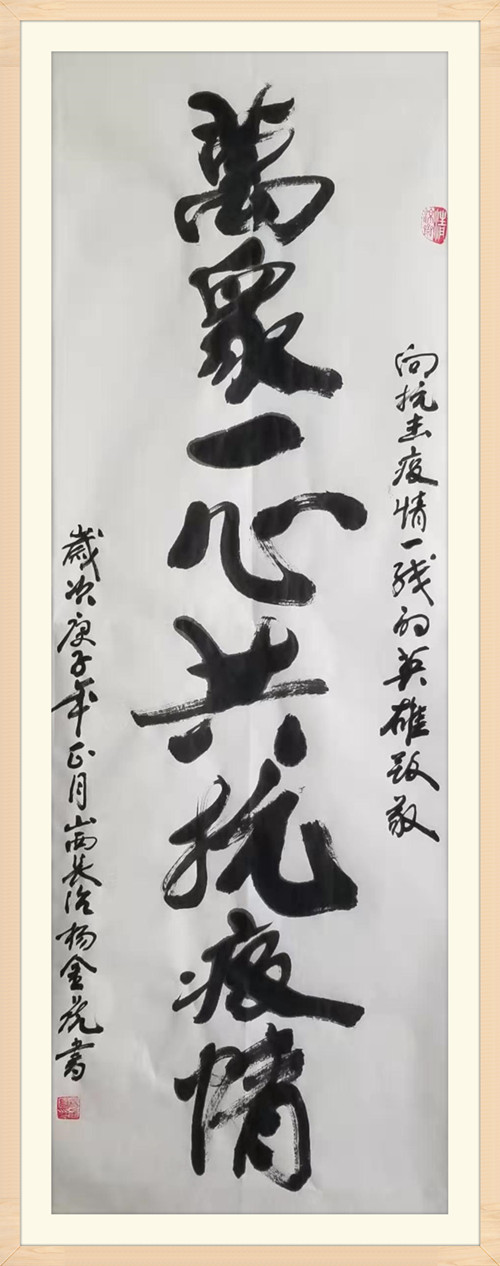 向抗击疫情一线的英雄致敬
萬眾一心共抗疫情
歲次庚子年正月山西长治杨金虎书